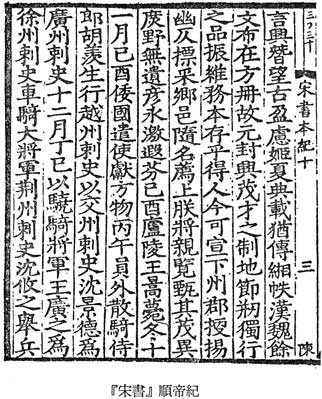 宋書本紀十 三 陳
言興替望古盈慮姬夏典載猶傳緗帙漢魏餘
文布在方冊故元封興茂才之制地節刱獨行
之品振維務本存乎得人今可宣下州郡搜揚
幽仄標采鄉邑隨名薦上朕將親覽甄其茂異
庶野無遺彥永激遐芬己酉廬陵王暠薨冬十
一月己酉倭國遣使獻方物丙午員外散騎侍
郎胡羨生行越州刺史以交州刺史沈景德爲
廣州刺史十二月丁巳以驍騎將軍王廣之爲
徐州刺史車騎大將軍荆州刺史沈攸之舉兵
『宋書』順帝紀